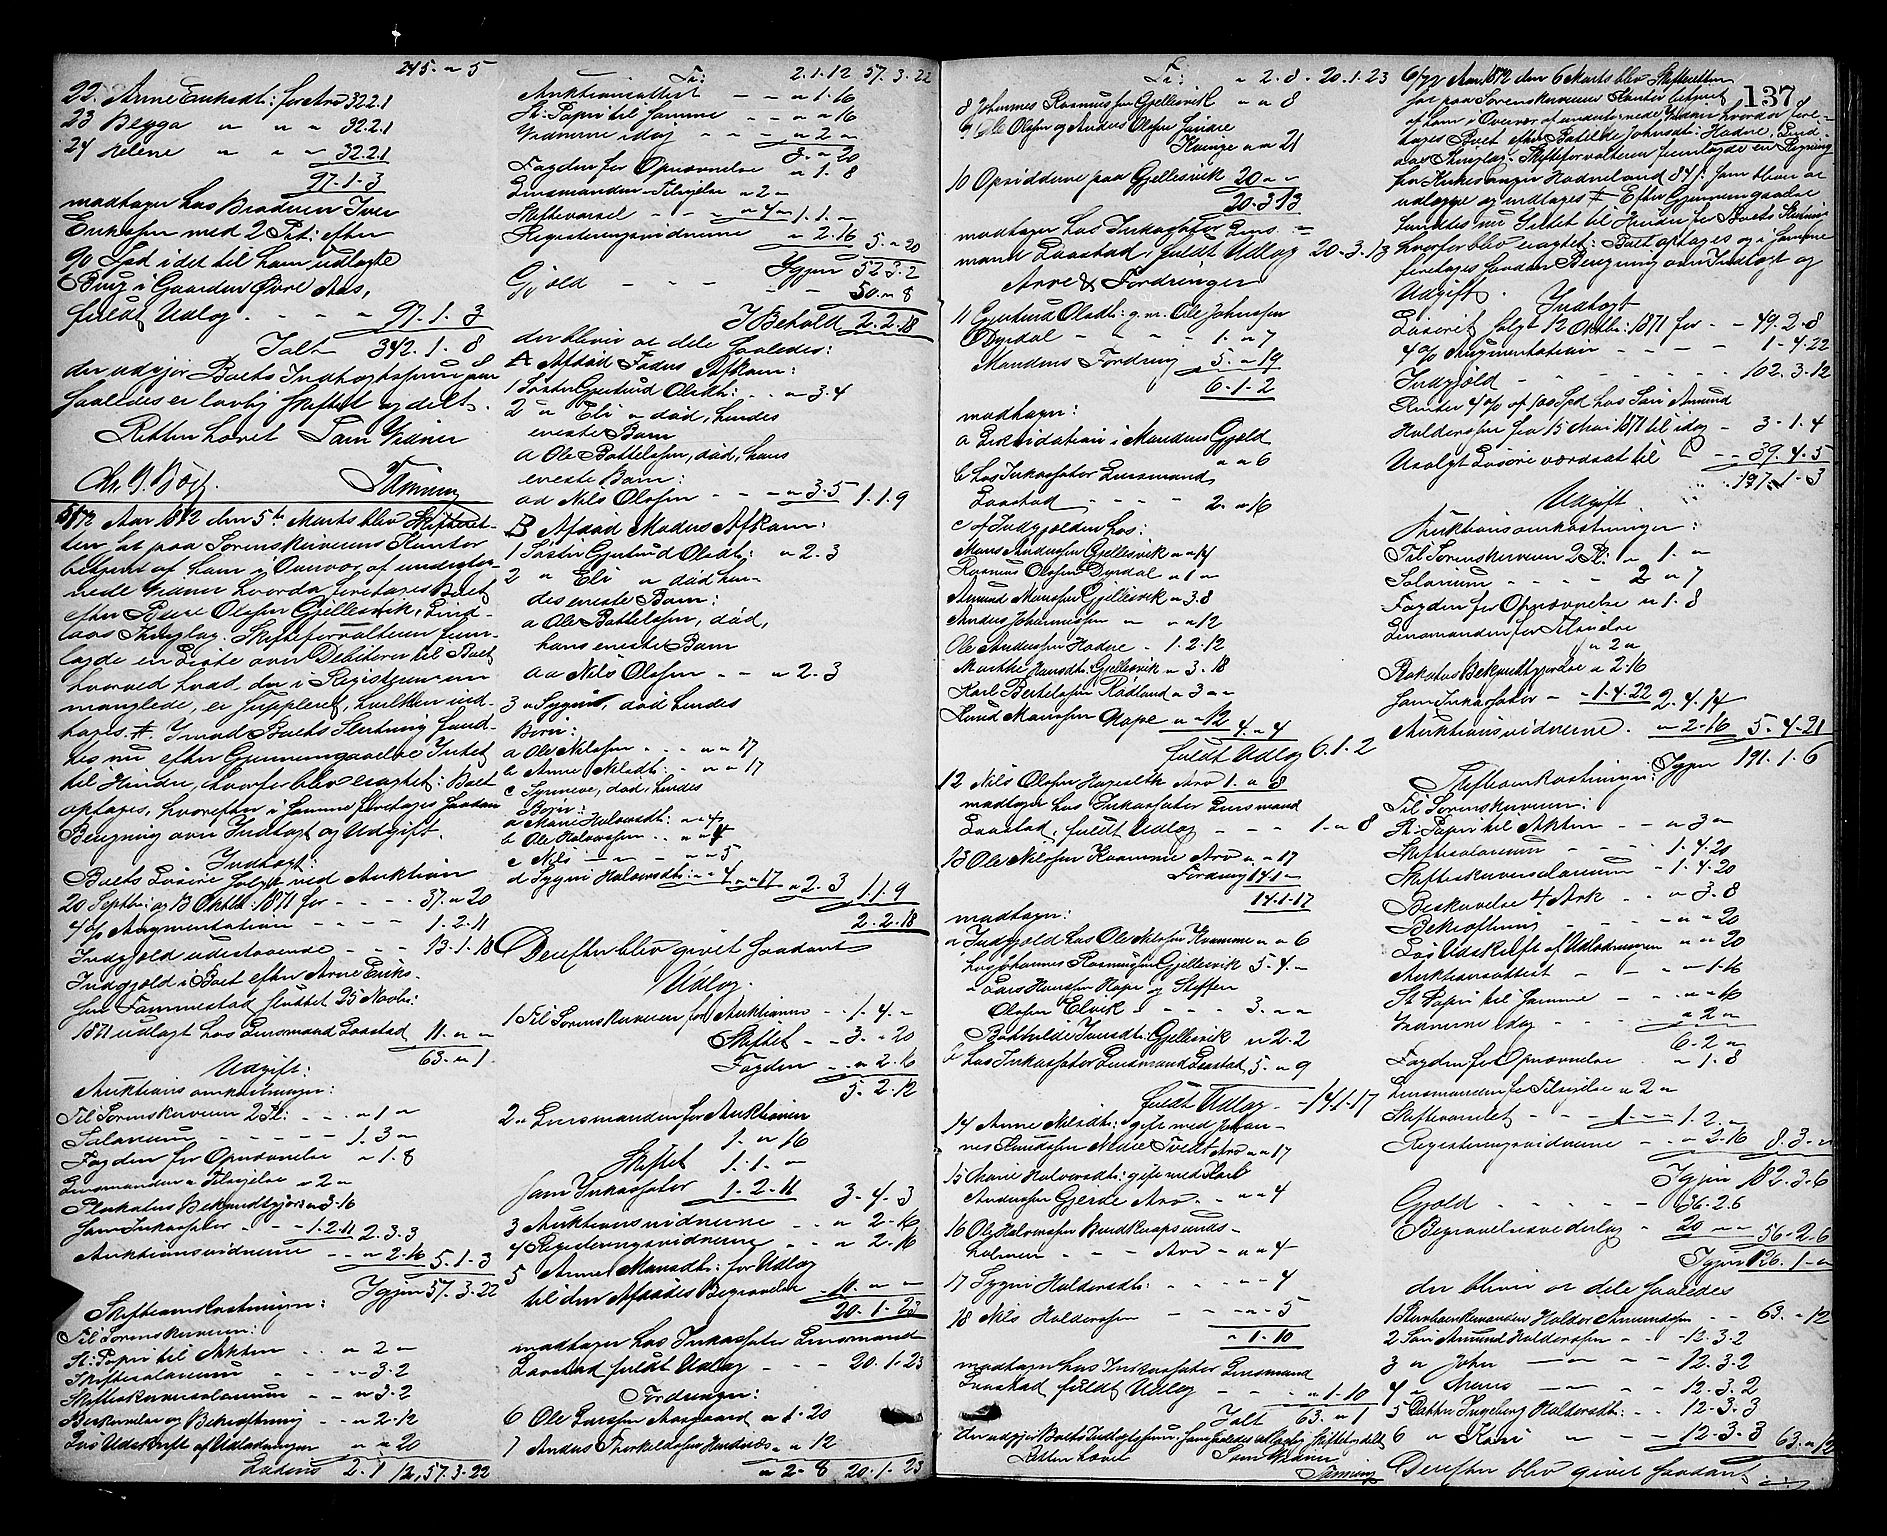 245 " 5
22. Anne Eriksdt: for Arv 32.2.1
23 Begga " " " 32.2.1
24 Helene " " " 32.2.1
97.1.3
modtager hos Broderen Iver
Eriksen med 2 Prt: efter
Brug i Gaarden Øvre Aas,
fuldt Udlog . . . 97.1.3
Ialt 342.1.8
der udgjør Boets Indtægtssum
saaledes er lovlig skiftet og delt.
Retten hævet Som Vidner
Aar 1872 den 5te Marts blev Skifteret-
ten sat paa Sorenskriverens Kontor
betjent af ham i Overvær af underteg-
nede Vidner hvorda foretages Boet
efter Olsen Gjellesvik, Lind-
aas Thinglag. Skifteforvalteren frem-
lagde en Liste over Debitorer til Boet
hvorved hvad der i Registreringen
manglede, er suppleret, hvilken ind-
tages #. Imod Boets Slutning fand-
tes nu efter Gjennemgaaelse Intet
til Hinder, hvorfor blev eragtet: Boet
optages, hvorefter i Samme foretages saadan
Beregning over Indtægt og Udgift.
Indtægt:
Boets Løsøre solgt ved Auktion
20 Septbr: og 13 Oktbr: 1871 for - - - 37 " 20
4 % Augmentation - - - 1.2.11
Indgjæld udestaaende - - - 13.1.18
Indgjæld i Boet efter Arne Erik-
sen Fammestad sluttet 25 Novbr:
1871 udlagt hos Lensmand Laastad 11 " "
63 " 1
Udgift:
Auktions omkostninger:
Til Sorenskriveren 2 Pl: - - " 1 "
Salarium - - - - - 1.3 "
Fogden for Opnævnelse " 1.8
Lensmanden " Tilsigelse " 2 "
Plakaters Bekjendtgjørelse " 3.16
som Inkassator - - - 1.2.11 2.3.3
Auktionsvidnerne - - " 2.16 5.1.3
Igjen 57.3.22
Skifteomkostninger:
Til Sorenskriveren:
St: Papir til Akten - - " 2 "
Skiftesalarium - - " 3.2
Skifteskriversalarium - - " 3.2
Beskrivelse og Bekræftning - - " 2.12
Løs Udskrift af Udlodningen " " 20
Lateris 2.1.12, 57.3.22
Tr: 2.1.12 57.3.22
Auktionsattest - - " 1.16
St: Papir til Samme - - - " 16
Vidnerne idag - - - " 2 "
3 " 20
Fogden for Opnævnelse " 1.8
Lensmanden " Tilsigelse " 2 "
Skiftevarsel - - - " 4 " 1.1 "
Registreringsvidnerne " 2.16 5 " 20
Igjen 52.3.2
Gjæld - - - - 50 " 8
I Behold 2.2.18
der bliver at dele saaledes:
A Afdød Faders Afkom:
1 Søster Gjertrud Olsdt: - - " 3.4
2 " Eli " død, hendes
eneste Barn
a Ole Bottelsen, død, hans
eneste Barn:
aa Nils Olsen - - - " 3.5 1.1.9
B Afdød Moders Afkom:
1 Søster Gjertrud Olsdt: " 2.3
2 " Eli " død hen-
des eneste Barn:
a Ole Bottelsen, død,
hans eneste Barn
aa Nils Olsen - - " 2.3
3 " Sygni, død hendes
Børn:
a Ole Nilsen - - - " " 17
b Anne Nilsdt: - - " " 17
c Synneve, død, hendes
Børn:
a Marie Halvorsdt: " " 4
b Ole Halvorsen - - " " 4
c Nils - " - " " 5
d Sygni Halvorsdt: " " 4 " " 17 " 2.3 1.1.9
2.2.18
Derefter blev givet saadant
Udlog.
1 Til Sorenskriveren for Auktionen - - 1.4 "
Skiftet - - 3 " 20
Fogden - - " 2.16
5.2.12
2 " Lensmanden for Auktionen
1 " 16
Skiftet 1.1 "
som Inkassator 1.2.11 3.4.3
3 Auktionsvidnerne - - " 2.16
4 Registreringsvidnerne - - " 2.16
5 Anne Monsdt: for Udlæg
til den Afdødes Begravelse 10 " "
20.1.23
modtager hos Inkassator Lensmand
Laastad fuldt Udlog - - - 20.1.23
Fordringer:
6 Ole Larsen Aasgaard " 1.20
7 Anders Therkildsen " " 12
" 2.8 20.1.23
Tr: " 2.8 20.1.23
8 Johannes Rasmussen Gjellesvik " " 8
9 Ole Olsen og Anders Olsen Søndre
Kvinge " " 21
10 Opsidderne paa Gjellesvik 20 " "
20.3.13
modtager hos Inkassator Lens-
mand Laastad, fuldt Udlog 20.3.13
Arv & Fordringer
11 Gjertrud Olsdt: g.m. Ole Johnsen
Dyrdal - - - - 1 " 7
Mandens Fordring - 5 " 19
6.1.2
modtager:
a Likvidation i Mandens Gjæld
" " 6
b hos Inkassator Lensmand
Laastad - - - 2 " 16
c af Indgjælden hos:
Mons Andersen Gjellesvik " " 14
Rasmus Olsen Dyrdal " 1 "
Amund Monsen Gjellesvik " 3.8
Anders Johannessen " " " 12
Ole Andersen Hodne - 1.2.12
Marthe Hansdt: Gjellesvik " 3.18
Karl Bertelsen Rødland " 3 "
Knud Monsen Hope " " 12 4 " 4
fuldt Udlog 6.1.2
12 Nils Olsen Arv 1 " 8
modtager hos Inkassator Lensmand
Laastad, fuldt Udlog - - - 1 " 8
13 Ole Nilsen Kvamme Arv " " 17
Fordring 14.1 "
14.1.17
modtager:
a Indgjæld hos Ole Nilsen Kvamme " " 6
hos Johannes Rasmussen Gjellesvik 5.4 "
" Lars Hansen Hope og Steffen
Olsen Elvik - - - - 3 " "
Bothilde Iversdt: Gjellesvik " 2.2
b hos Inkassator Lensmand Laastad 5 " 9
fuldt Udlog - 14.1.17
14 Anne Nilsdt: gift med Johan-
nes Knudsen Nedre Tvedt Arv " " 17
15 Marie Halvorsdt: gift med
Andersen Gjerde Arv - " " 4
16 Ole Halvorsen
holmen - - Arv " " 4
17 Sygni Haldorsdt: - - " " 4
18 Nils Haldorsen - - " " 5
" 1.10
modtager hos Inkassator Lensmand
Laastad, fuldt Udlog - - - " 1.10
Ialt 63 " 1
der udgjør Boets Indtægtssum, som saaledes er lovlig skiftet og delt
Retten hævet Som Vidner
137
6/72 Aar 1872 den 6 Marts blev Skifteretten
sat paa Sorenskriverens Kontor betjent
af ham i Overvær af undertegnede Vidner hvorda fore-
tages Boet efter Botilde Johnsdt: Hodne, Lind-
aas Thinglag. Skifteforvalteren fremlagde en Regning
fra Kirkesanger Hodneland 84 β. som bliver at
udlægge og indtages #. Efter Gjennemgaaelse
fandtes nu Intet til Hinder for Boets Slutning
hvorfor blev eragtet: Boet optages og i Samme
foretages saadan Beregning over Indtægt og
Udgift.
Indtægt
Løsøret solgt 12 Oktbr: 1871 for - - 49.2.8
4 % Augmentation - - - - 1.4.22
Indgjæld - - - - - 102.3.12
Renter 4 % af 100 Spd hos Søn Amund
Haldorsen fra 15 Mai 1871 til idag - 3.1.4
Usolgt Løsøre værdsat til - - 39.4.5
197.1.3
Udgift.
Auktionsomkostninger:
Til Sorenskriveren 2 Pl: " 1 "
Salarium - - - - 2 " 7
Fogden for Opnævnelse " 1.8
Lensmanden for Tilsigelse
" 2 "
Plakaters Bekjendtgjørelse " 2.16
som Inkassator - - 1.4.22 2.4.14
Auktionsvidnerne. " 2.16 5.4.21
Igjen 191.1.6
Skifteomkostninger:
Til Sorenskriveren:
St: Papir til Akten - - " 3 "
Skiftesalarium - - - - 1.4.20
Skifteskriversalarium - 1.4.20
Beskrivelse 4 Ark - - " 3.8
Bekræftning - - - " " 20
Løs Udskrift af Udlodningen " " 20
Auktionsattest - - - " 1.16
St: Papir til Samme - - - " " 16
Vidnerne idag - - - " 2 "
6.2 "
Fogden for Opnævnelse - " 1.8
Lensmanden for Tilsigelse " 2 "
Skiftevarslet - - - 1 " " 1.2 "
Registreringsvidnerne - - " 2.16 8.3 "
Igjen 182.3.6
Gjæld - - - - - 36.2.6
Begravelsesvederlag - - 20 " " 56.2.6
Igjen 126.1 "
der bliver at dele saaledes
1 Enkemanden Haldor Amundsen - - 63 " 12
2 Søn Amund Haldorsen - - 12.3.2
3 " John - " - 12.3.2
4 " Mons - " - 12.3.2
5 Datter Ingeborg Haldorsdt: - - 12.3.3
6 " Kari " - - 12.3.3 63 " 12
Derefter blev givet saadant